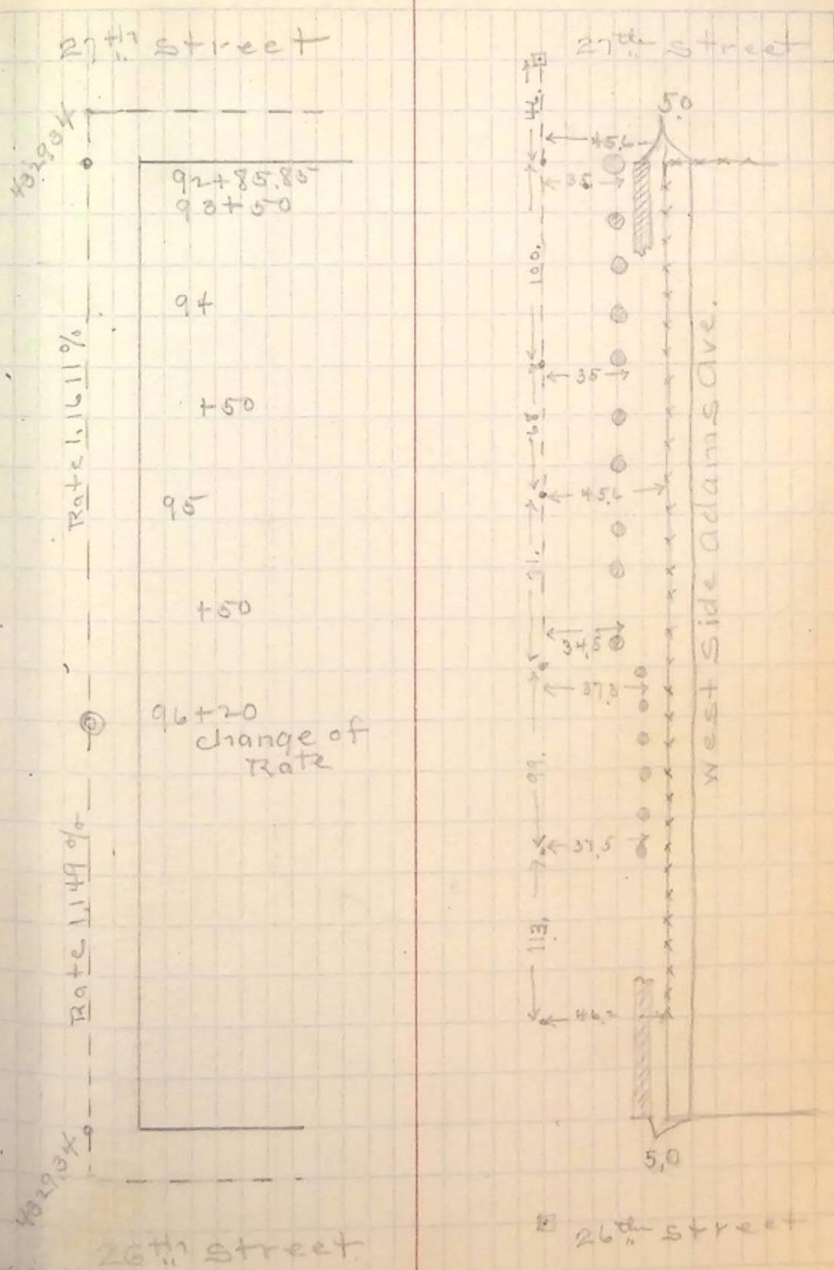 27th Street
92+85.85
93+50
94
+50
95
+50
96+20
change of
Rate
Rate 1.1611%
Rate 1.149%
26th Street
27th Street
5.0
46.
45.6
35
100.
35
68
45.6
71.
34.5
37.3
99.
37.5
113.
46.2
West Side Adams Ave.
5.0
26th Street